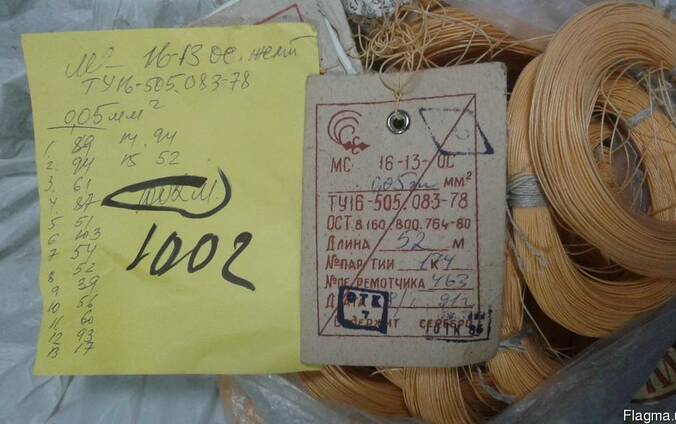 МС 16-13 ос. желт
ТУ16-505.083-78
0,05 мм²
1. 89 14. 94
2. 94 15 52
3. 61
4. 87
5 51
6 103
7 54
8 52
9 39
10 56
11 60
12 93
13 17
1002
МС 16-13-ОС
0,05 мм²
ТУ16-505.083-78
ОСТ 8 160.800.764-80
ДЛИНА 52 М
№ПАРТИИ 174
№ПЕРЕМОТЧИКА 463
ДАТА 91г
ОТК
7
СОДЕРЖИТ СЕРЕБРО
Flagma.